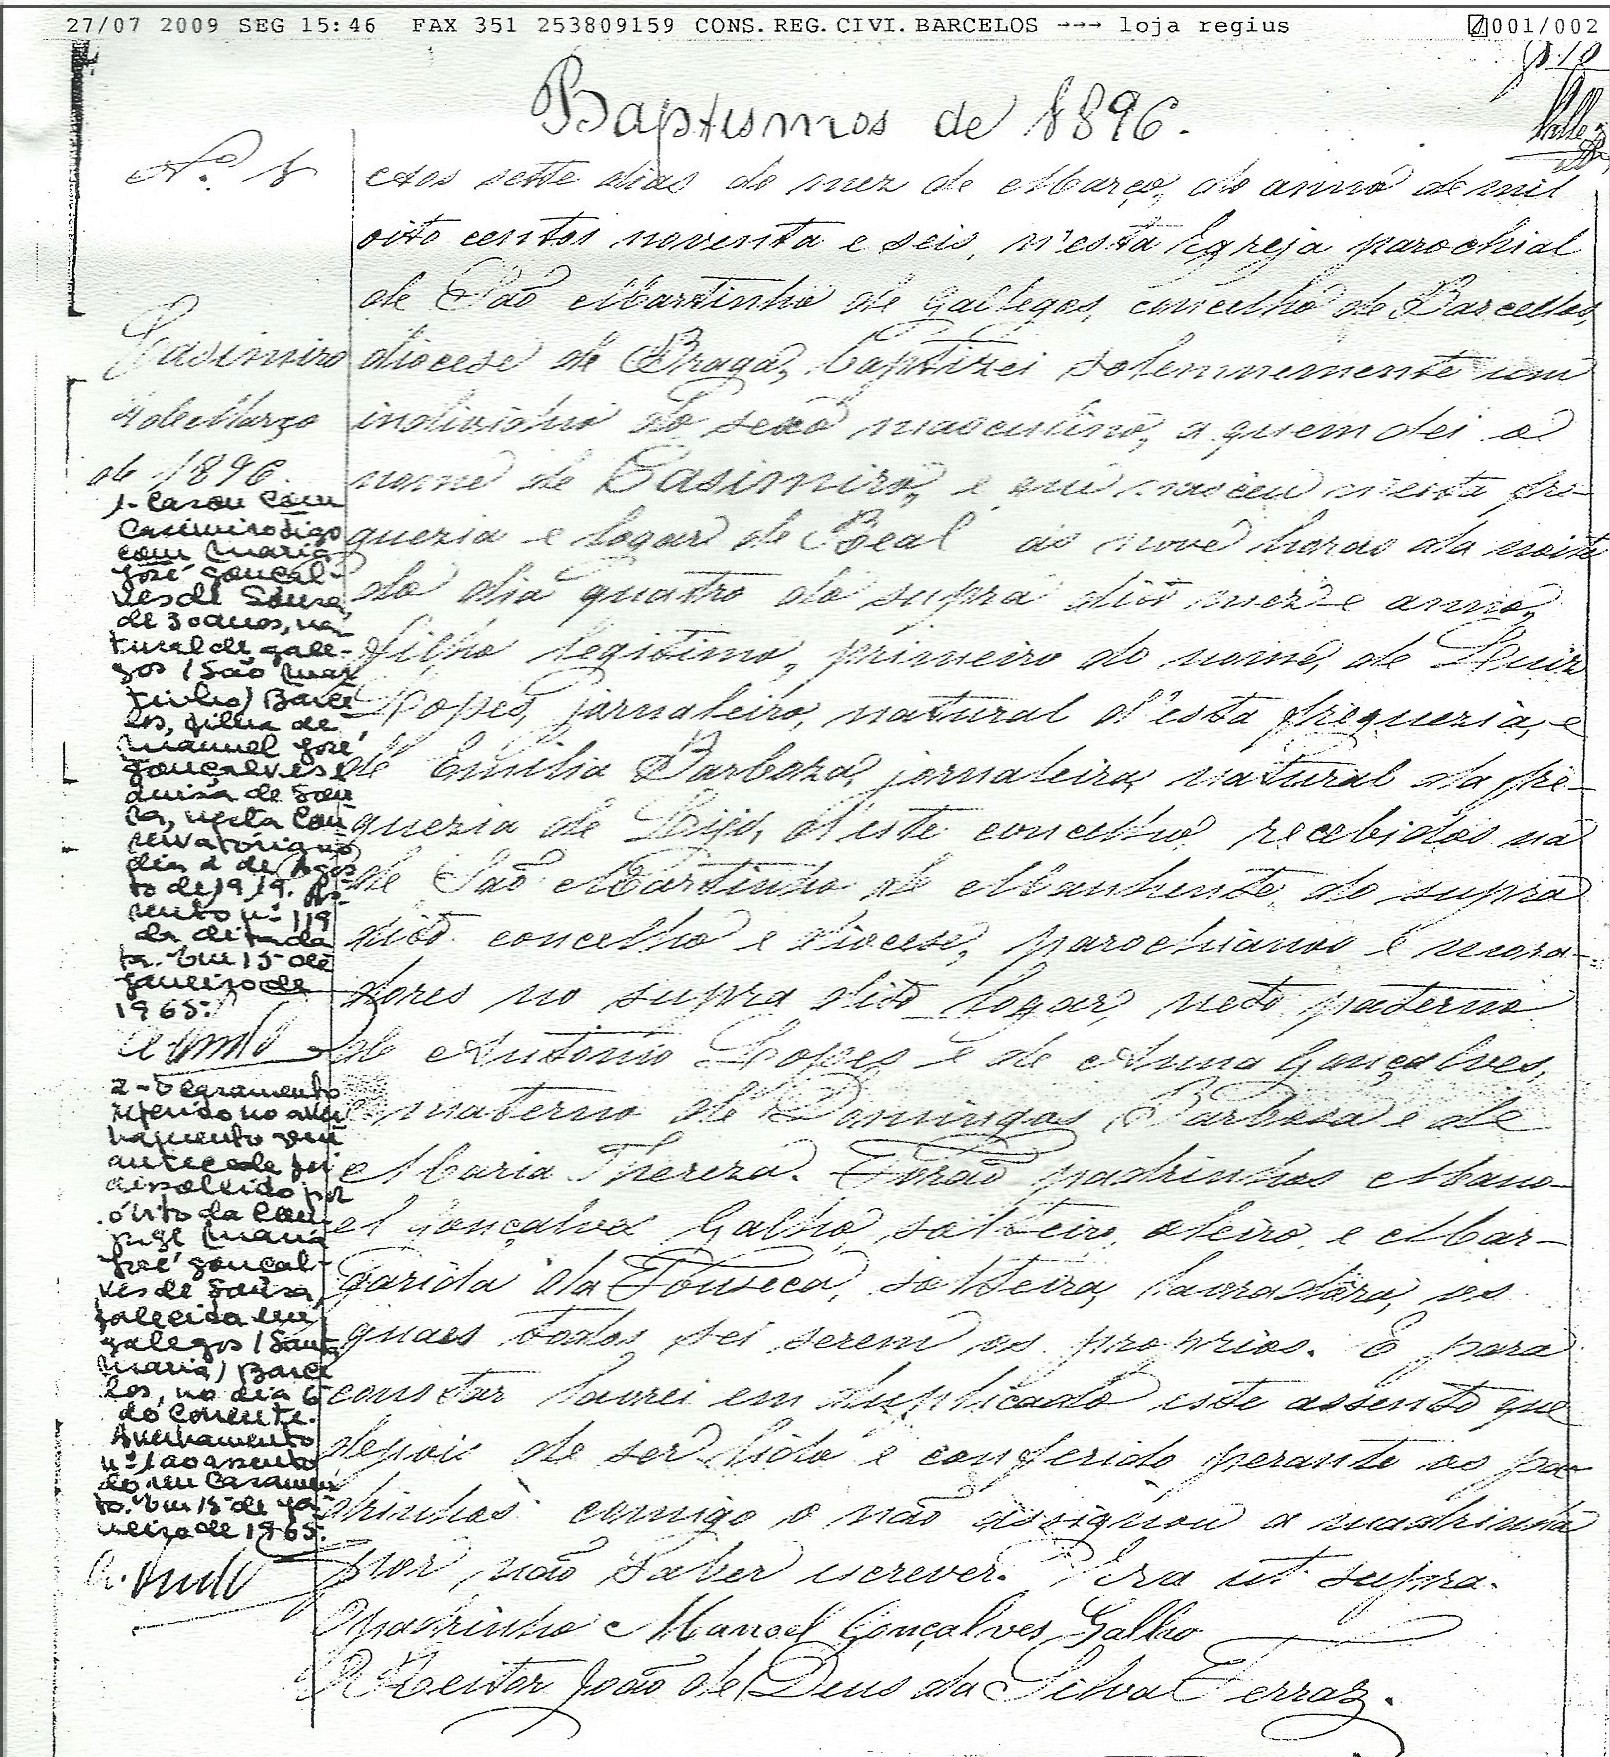 27/07 2009 SEG 15:46 FAX 351 253809159 CONS.REG.CIVI.BARCELOS →→→ loja regius 001/002
Baptismos de 1896.
Nº 8
Casimiro
4 de Março
de 1896.
Aos sette dias do mez de Março, do anno de mil
oito centos noventa e seis, n'esta Egreja parochial
de São Martinho de Gallegos, concelho de Barcellos,
diocese de Braga, baptizei solemnemente um
individuo do sexo masculino, a quem dei o
nome de Casimiro, e que nasceu n'esta fre-
guezia e logar de Real as nove horas da noite
do dia quatro do supra dito mez e anno,
filho legitimo, primeiro do nome, de Luiz
Lopes, jornaleiro, natural d'esta freguezia, e
de Emilia Barboza, jornaleira, natural da fre-
guezia de Lijó, d'este concelho, recebidos na
de São Martinho de Manhente do supra
dito concelho e diocese, parochianos e mora-
dores no supra dito logar, neto paterno
de Antonio Lopes e de Anna Gonçalves,
e materno de Domingos Barboza e de
Maria Thereza. Forão padrinhos Mano-
el Gonçalves Galho, solteiro, oleiro, e Mar-
garida da Fonseca, solteira, lavradora, os
quaes todos sei serem os proprios. E para
constar lavrei em duplicado este assento que
depois de ser lido e conferido perante os pa-
drinhos comigo o não assignou a madrinha
por não saber escrever. Era ut supra.
O padrinho Manoel Gonçalves Galho
O Reitor João de Deus da Silva Ferraz.
1- Casou com
Casimiro digo
com Maria
José Gonçal-
ves de Sousa
de 30 anos, na-
tural de Gale-
gos (São Mar
tinho) Barce
los, filha de
Manuel José
Gonçalves e
de Sou
sa, nesta Con
servatória no
dia 2 de Agos
to de 1919. As-
sento nº 119
da dita da
ta. Em 15 de
Janeiro de
1965.
2- O casamento
referido no aver
bamento que
antecede foi
dissolvido por
óbito da Con-
juge Maria
José Gonçal-
ves de Sousa
falecida em
Galegos (Santa
Maria) Barce
los, no dia 6
do corrente.
Averbamento
nº 1 ao assento
de seu casamen
to. Em 15 de Ja-
neiro de 1965.